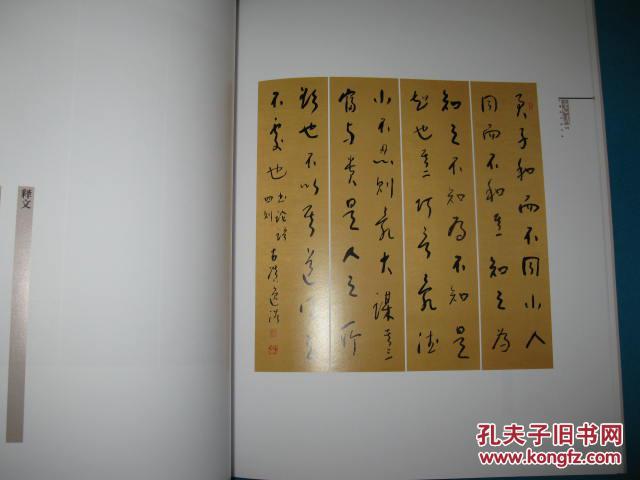 君子和而不同小人
同而不和其一知之为
知之不知为不知是
知也其二巧言乱德
小不忍则乱大谋其三
富与贵是人之所
欲也不以其道得之
不处也
书论语
四则
释文
孔夫子旧书网
www.kongfz.com